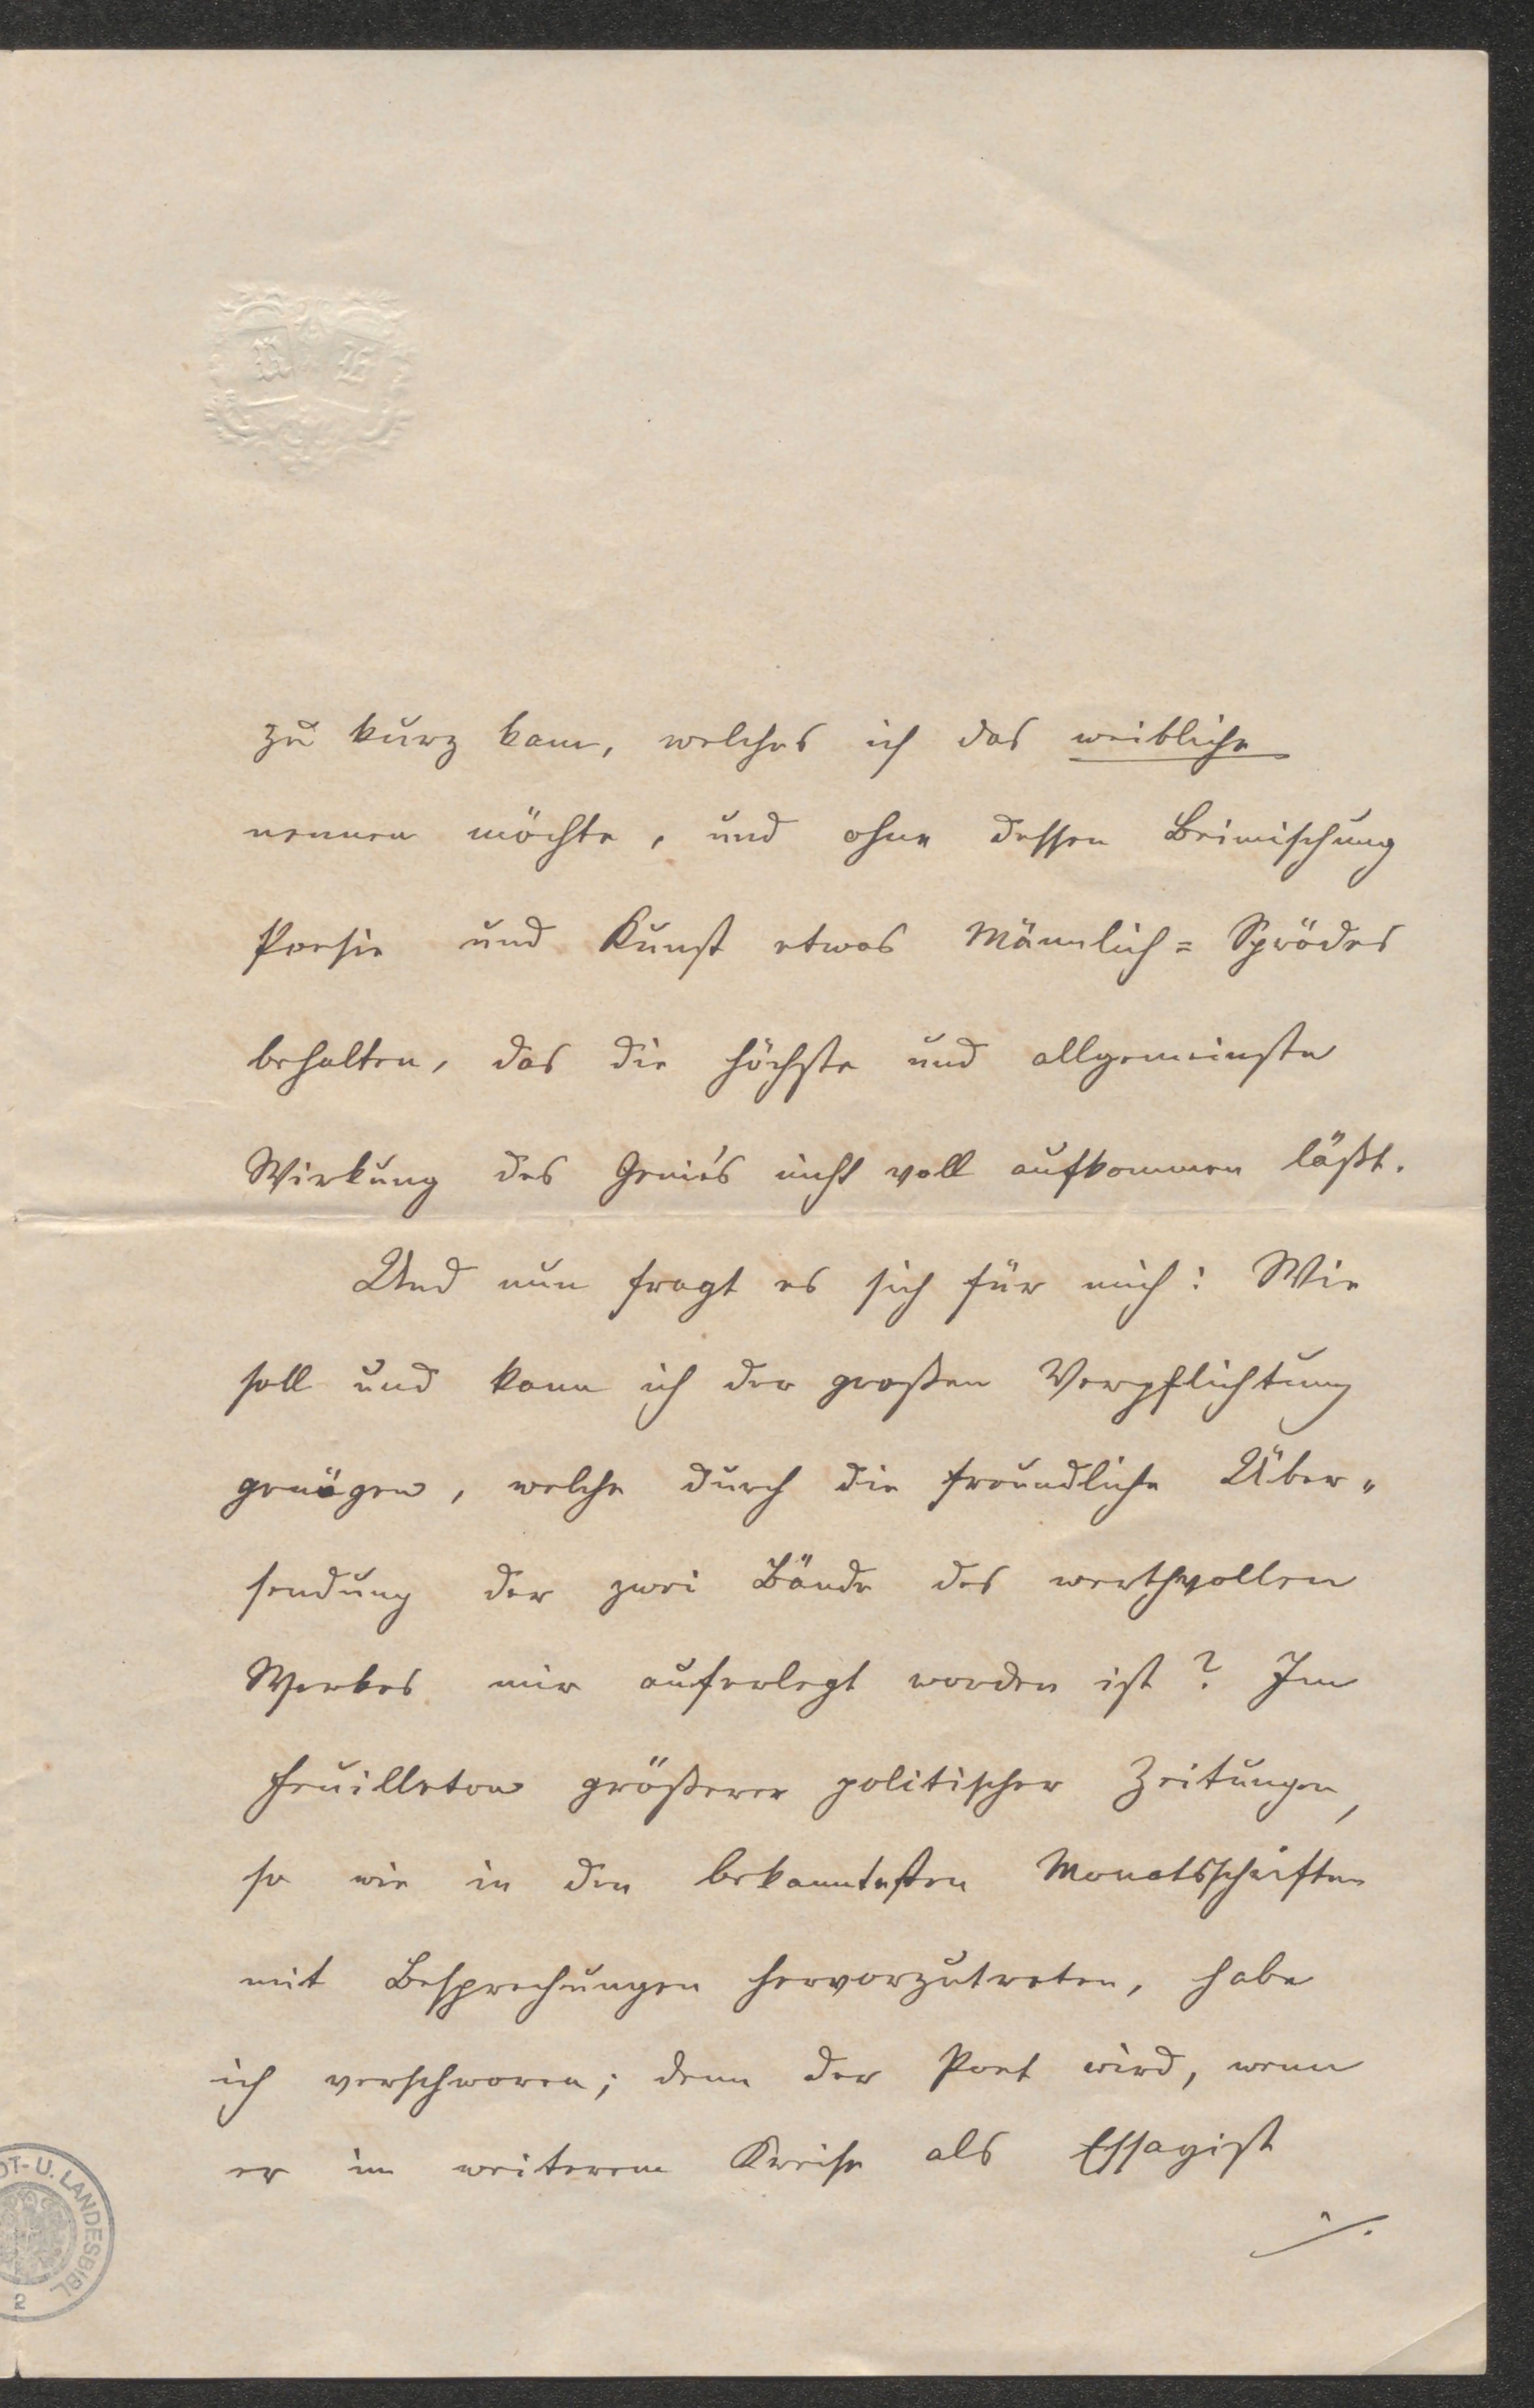 zu kurz kam, welches ich das weibliche
nennen möchte, und ohne dessen Beimischung
Poesie und Kunst etwas Männlich= Sprödes
behalten, das die höchste und allgemeinste
Wirkung des Genie's nicht voll aufkommen läßt.
Und nun fragt es sich für mich: Wie
soll und kann ich der großen Verpflichtung
genügen, welche durch die freundliche Über„
sendung der zwei Bände des werthvollen
Werkes mir auferlegt worden ist? Im
Feuilleton größerer politischer Zeitungen,
so wie in den bekanntesten Monatsschriften
mit Besprechungen hervorzutreten, habe
ich verschworen; denn der Poet wird, wenn
er im weiterem Kreise als Essayist
./.
DT- U. LANDESBIBL
2